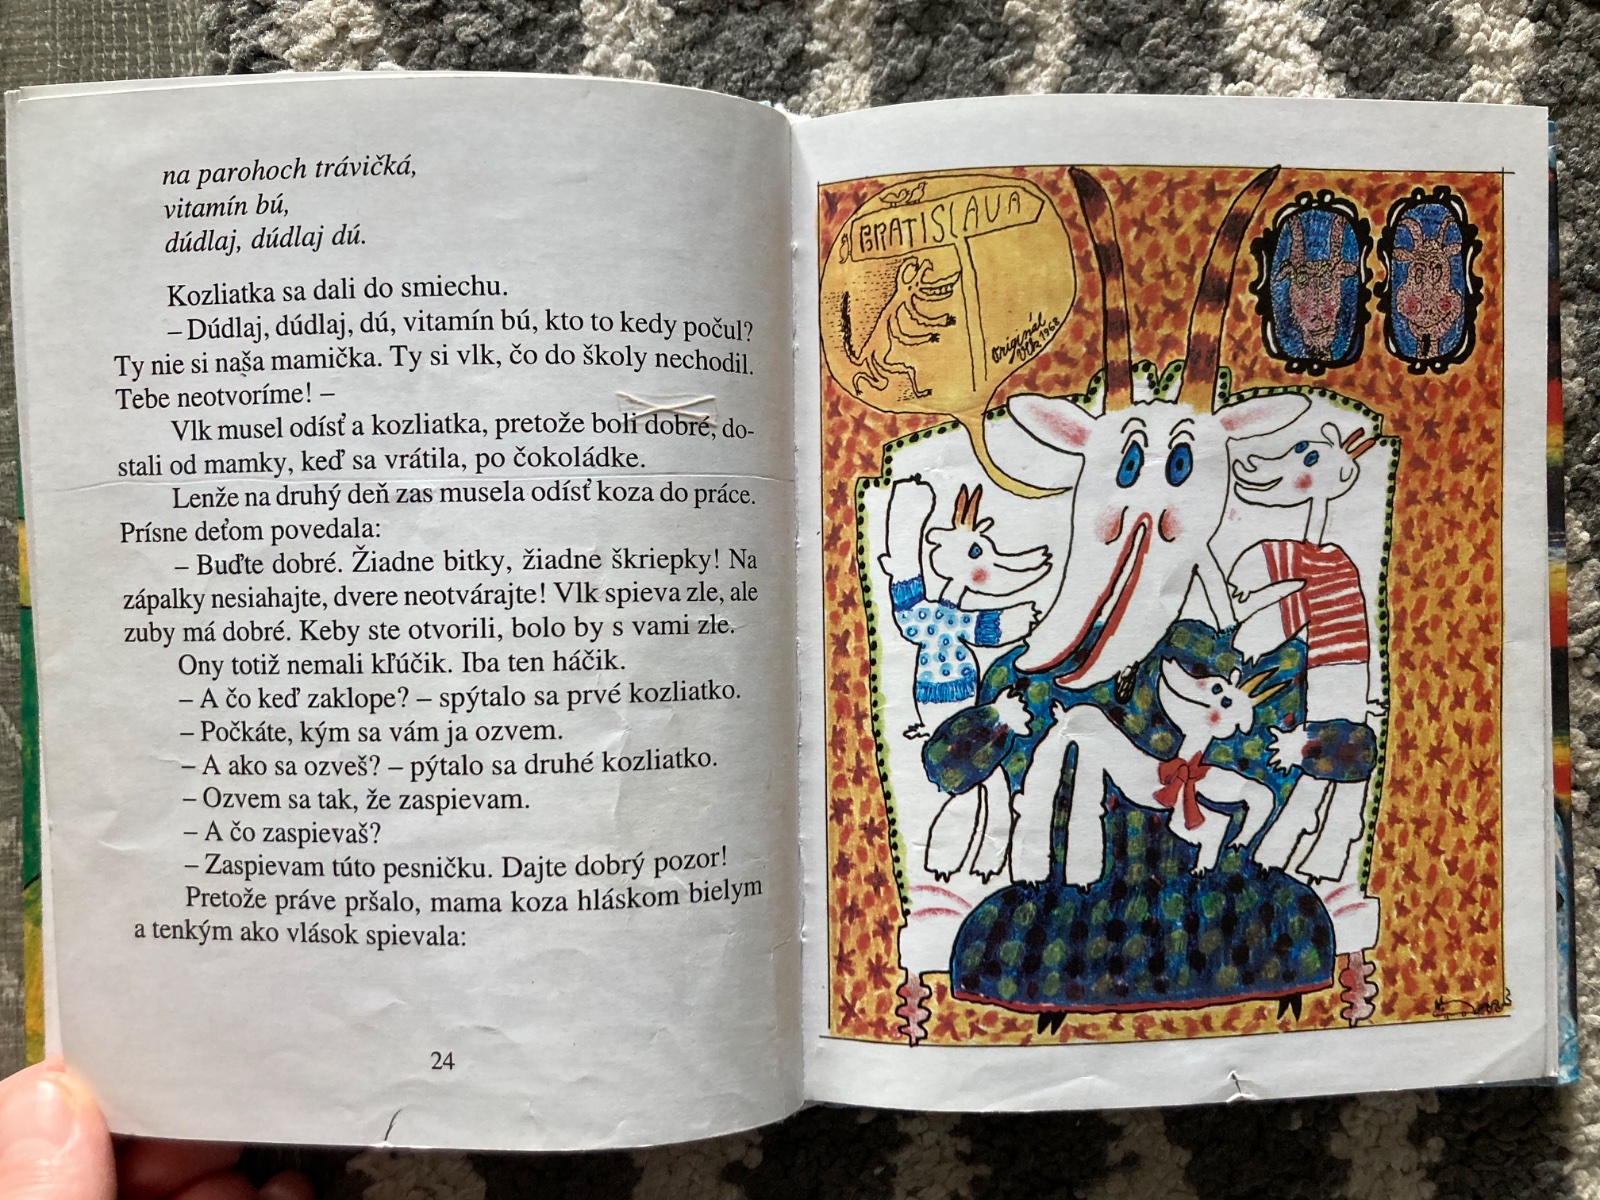 na parohoch trávičká,
vitamín bú,
dúdlaj, dúdlaj dú.
Kozliatka sa dali do smiechu.
– Dúdlaj, dúdlaj, dú, vitamín bú, kto to kedy počul?
Ty nie si naša mamička. Ty si vlk, čo do školy nechodil.
Tebe neotvoríme! –
Vlk musel odísť a kozliatka, pretože boli dobré, do-
stali od mamky, keď sa vrátila, po čokoládke.
Lenže na druhý deň zas musela odísť koza do práce.
Prísne deťom povedala:
– Buďte dobré. Žiadne bitky, žiadne škriepky! Na
zápalky nesiahajte, dvere neotvárajte! Vlk spieva zle, ale
zuby má dobré. Keby ste otvorili, bolo by s vami zle.
Ony totiž nemali kľúčik. Iba ten háčik.
– A čo keď zaklope? – spýtalo sa prvé kozliatko.
– Počkáte, kým sa vám ja ozvem.
– A ako sa ozveš? – pýtalo sa druhé kozliatko.
– Ozvem sa tak, že zaspievam.
– A čo zaspievaš?
– Zaspievam túto pesničku. Dajte dobrý pozor!
Pretože práve pršalo, mama koza hláskom bielym
a tenkým ako vlások spievala:
24
BRATISLAVA
originál
Vlk 1968